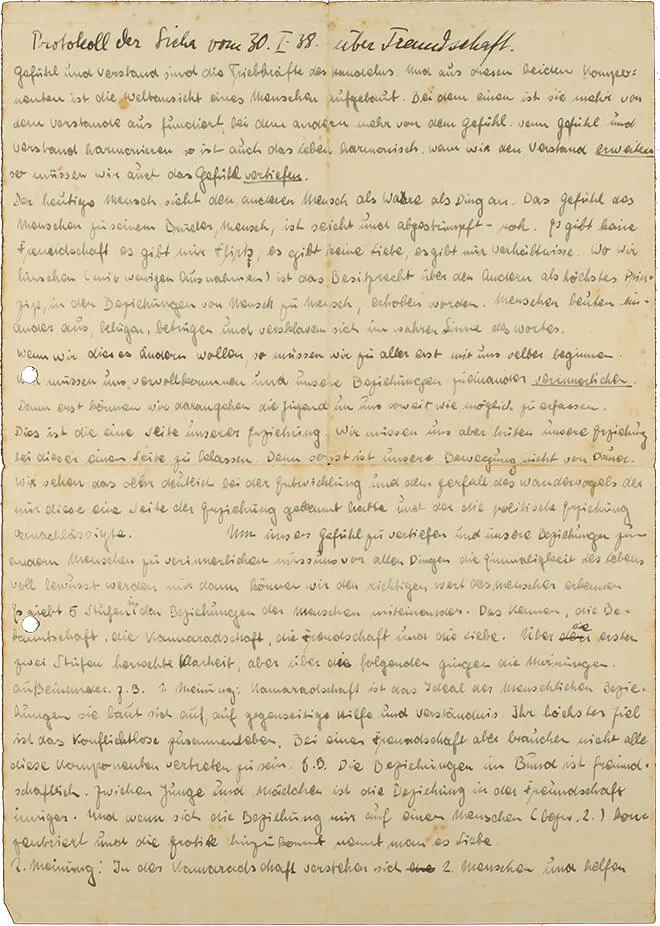 Protokoll der Sicha vom 30. I. 38. über Freundschaft.
Gefühl und Verstand sind die Triebkräfte des Handelns. Und aus diesen beiden Kompo-
nenten ist die Weltansicht eines Menschen aufgebaut. Bei dem einen ist sie mehr von
dem Verstande aus fundiert, bei dem andern mehr von dem Gefühl. Wenn Gefühl und
Verstand harmonieren so ist auch das Leben harmonisch. Wenn wir den Verstand erweitern
so müssen wir auch das Gefühl vertiefen.
Der heutige Mensch sieht den anderen Mensch als Ware als Ding an. Das Gefühl des
Menschen zu seinem Bruder, Mensch, ist seicht und abgestumpft - roh. Es gibt keine
Freundschaft es gibt nur Flirts, es gibt keine Liebe, es gibt nur Verhältnisse. Wo wir
hinsehen (mit wenigen Ausnahmen) ist das Besitzrecht über den Andern als höchstes Prin-
zip, in den Beziehungen von Mensch zu Mensch, erhoben worden. Menschen beuten ein-
ander aus, belügen, betrügen und versklaven sich im wahren Sinne des Wortes.
Wenn wir dieses ändern wollen, so müssen wir zu aller erst mit uns selber beginnen.
müssen uns vervollkommnen und unsere Beziehungen zueinander verinnerlichen.
Denn erst können wir darangehen die Jugend um uns soweit wie möglich zu erfassen.
Dies ist die eine Seite unserer Erziehung. Wir müssen uns aber hüten unsere Erziehung
bei dieser einen Seite zu belassen. Denn sonst ist unsere Bewegung nicht von Dauer.
Wir sehen das sehr deutlich bei der Entwicklung und dem Zerfall des Wandervogels der
nur diese eine Seite der Erziehung gekannt hatte und der die politische Erziehung
vernachlässigte. Um unser Gefühl zu vertiefen und unsere Beziehungen zum
andern Menschen zu verinnerlichen muss uns vor allen Dingen die Einmaligkeit des Lebens
voll bewusst werden nur dann können wir den richtigen Wert des Menschen erkennen
Es giebt 5 Stufen in den Beziehungen der Menschen miteinander. Das Kennen, die Be-
kanntschaft, die Kammaradschaft, die Freundschaft und die Liebe. Über die ersten
zwei Stufen herrschte Klarheit, aber über die folgenden gingen die Meinungen
außeinender. z.B. 1. Meinung: Kamaradschaft ist das Ideal der Menschlichen Bezie-
hungen sie baut sich auf, auf gegenseitige Hilfe und Verständnis. Ihr höchstes Ziel
ist das Konflichtlose zusammenleben. Bei einer Freundschaft aber brauchen nicht alle
diese Komponenten vertreten zu sein. z.B. Die Beziehungen im Bund ist freund-
schaftlich. Zwischen Junge und Mädchen ist die Beziehung in der Freundschaft
inniger. Und wenn sich die Beziehung nur auf einen Menschen (bezw. 2.) kon-
zentriert und die Erotik hinzukommt nennt man es Liebe.
2. Meinung: In der Kamaradschaft verstehen sich 2. Menschen und helfen